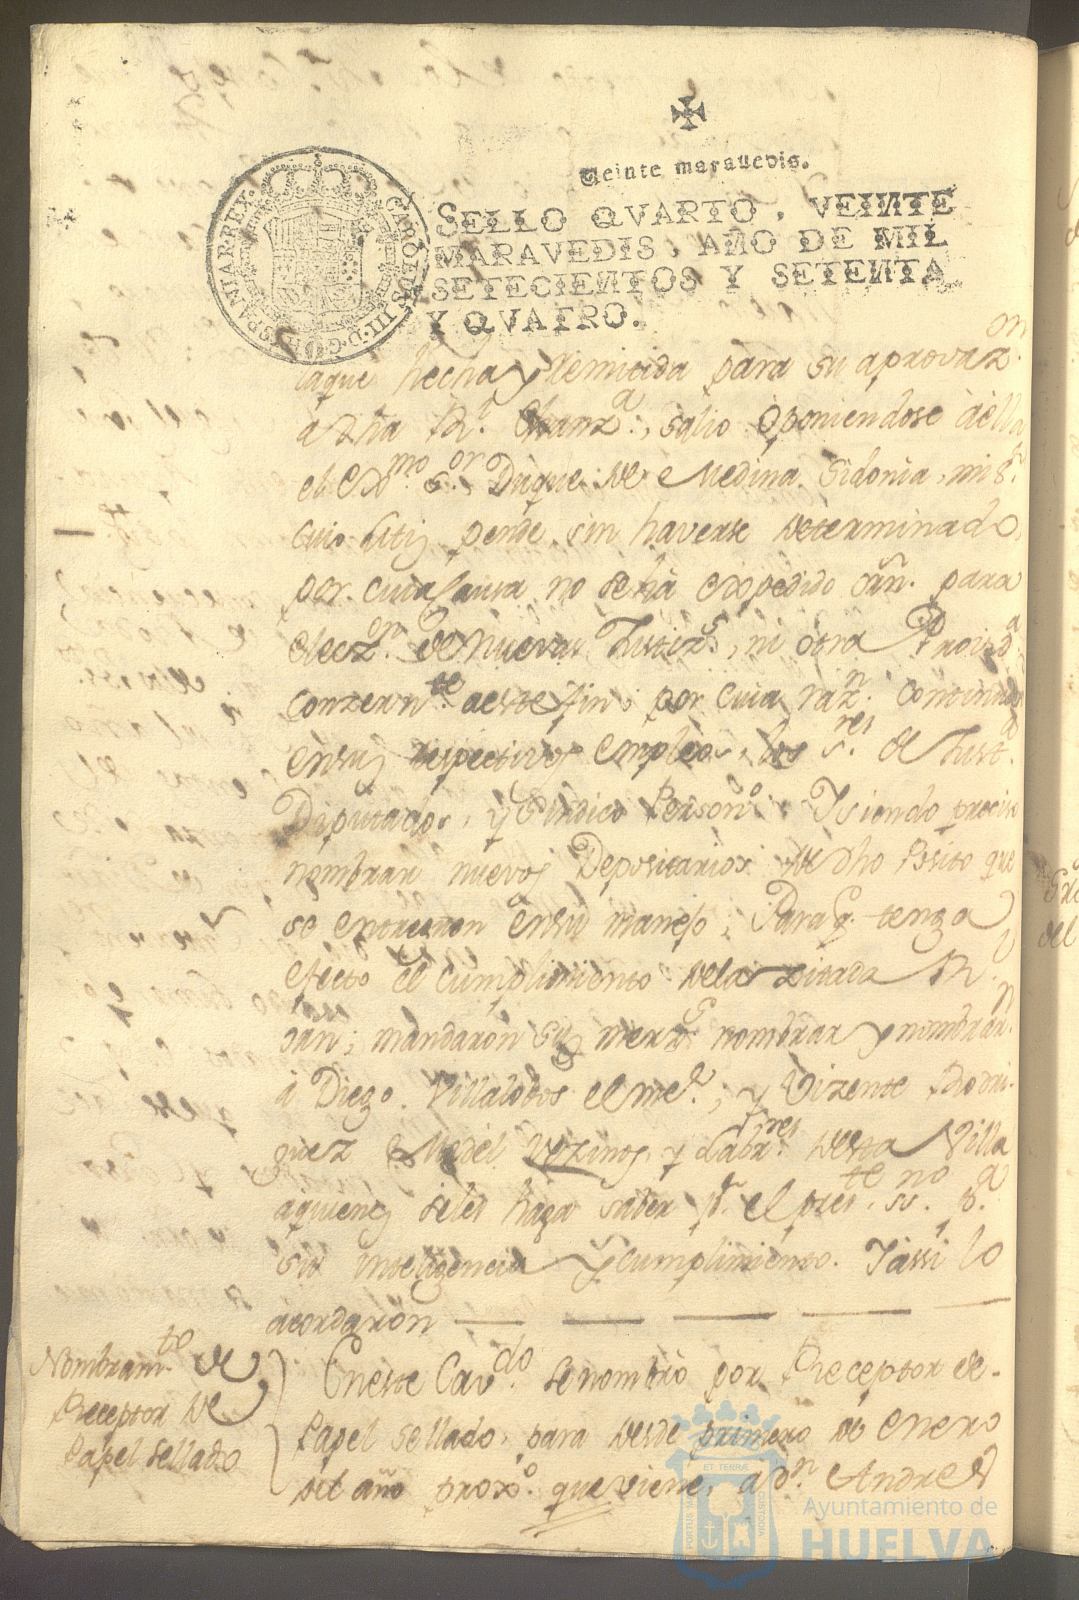 Veinte marauedis.
SELLO QVARTO, VEINTE
MARAVEDIS, AÑO DE MIL
SETECIENTOS Y SETENTA
Y QVATRO.
CAROLUS III. D. G. HISPANIAR. REX.
laque hecha y Remitida para su aprovazon
a dha Rl. Chanza., salio oponiendose aella
el Exmo. Sor. Duque de Medina Sidonia, mi Sr.
cuio Litis pende, sin haverse determinado,
por cuia Causa no se ha expedido para
eleczon. de nuevas Justizs, ni otra Provida.
conzernte. aeste fin; por cuia razn. continuan
ensus respectivos empleos, los Sres. de Justa.
Diputados, y Sindico Persono. Y siendo preciso
nombrar nuevos Depositarios de dho Posito que
se entreguen ensu manejo; Para q. tenga
efecto el cumplimiento dela zitada Rl.
mandaron Sus merzs nombrar y nombraron
à Diego Villalobos el me.r; y Vizente Rodri-
guez Medel Vezinos, y Labres. desta Villa
aquienes seles haga saber pr. el preste. ssno. pa.
su inteligencia y cumplimiento. Y assi lo
acordaron
Nombramto de
Receptor de
Papel Sellado
Eneste Cavdo. se nombrò por Receptor de
Papel sellado, para desde primero de Enero
del año proxo. que viene, a Dn. Andres
ET TERRÆ
PORTUS MARIS
CUSTODIA
Ayuntamiento de
HUELVA